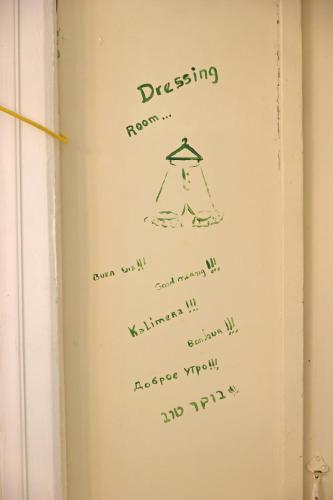 Dressing
Room...
Buen Dia!!!
Good morning!!!
Kalimera!!!
Bonjour!!!
Доброе Утро!!!
בוקר טוב!!!